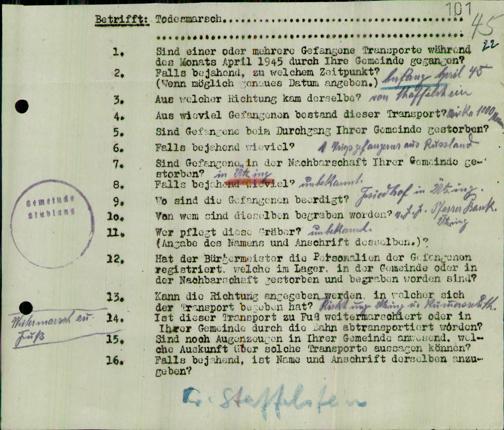 101
45
22
Betrifft: Todesmarsch.
1. Sind einer oder mehrere Gefangene Transporte während
des Monats April 1945 durch Ihre Gemeinde gegangen?
2. Falls bejahend, zu welchem Zeitpunkt? Anfang April 45
(Wenn möglich genaues Datum angeben.)
3. Aus welcher Richtung kam derselbe? von Staffelstein
4. Aus wieviel Gefangenen bestand dieser Transport? 1000
5. Sind Gefangene beim Durchgang Ihrer Gemeinde gestorben?
6. Falls bejahend wieviel? 1 aus Russland
7. Sind Gefangene in der Nachbarschaft Ihrer Gemeinde ge-
storben? in Ützing
8. Falls bejahend wieviel? unbekannt.
9. Wo sind die Gefangenen beerdigt? Friedhof in Ützing.
10. Von wem sind dieselben begraben worden? Pfarrer
Ützing
11. Wer pflegt diese Gräber? unbekannt.
(Angabe des Namens und Anschrift desselben.)?
12. Hat der Bürgermeister die Personalien der Gefangenen
registriert, welche im Lager, in der Gemeinde oder in
der Nachbarschaft gestorben und begraben worden sind?
13. Kann die Richtung angegeben werden, in welcher sich
der Transport begeben hat? Richtung Ützing
14. Ist dieser Transport zu Fuß weitermarschiert oder in
Ihrer Gemeinde durch die Bahn abtransportiert worden?
Weitermarsch zu
Fuß
15. Sind noch Augenzeugen in Ihrer Gemeinde anwesend, wel-
che Auskunft über solche Transporte aussagen können?
16. Falls bejahend, ist Name und Anschrift derselben anzu-
geben?
Gemeinde
Stublang
Staffelstein